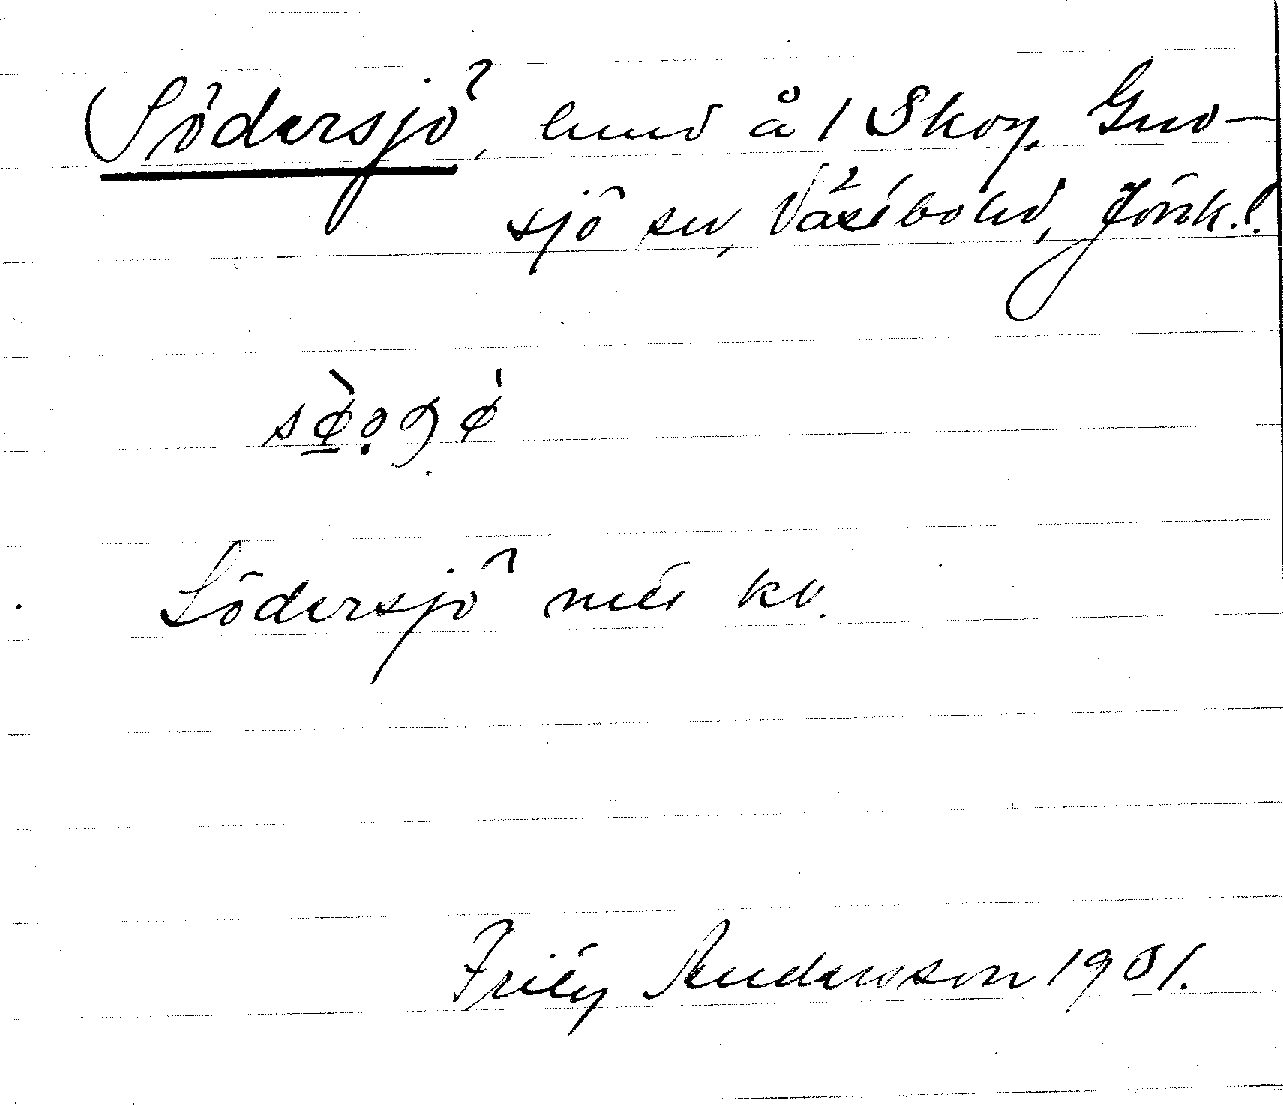 Södersjö, hmd å 1 Skog, Gno-
sjö sn, Västbo hd, Jönk. l.
Södersjö
Fritz Andersson 1901.